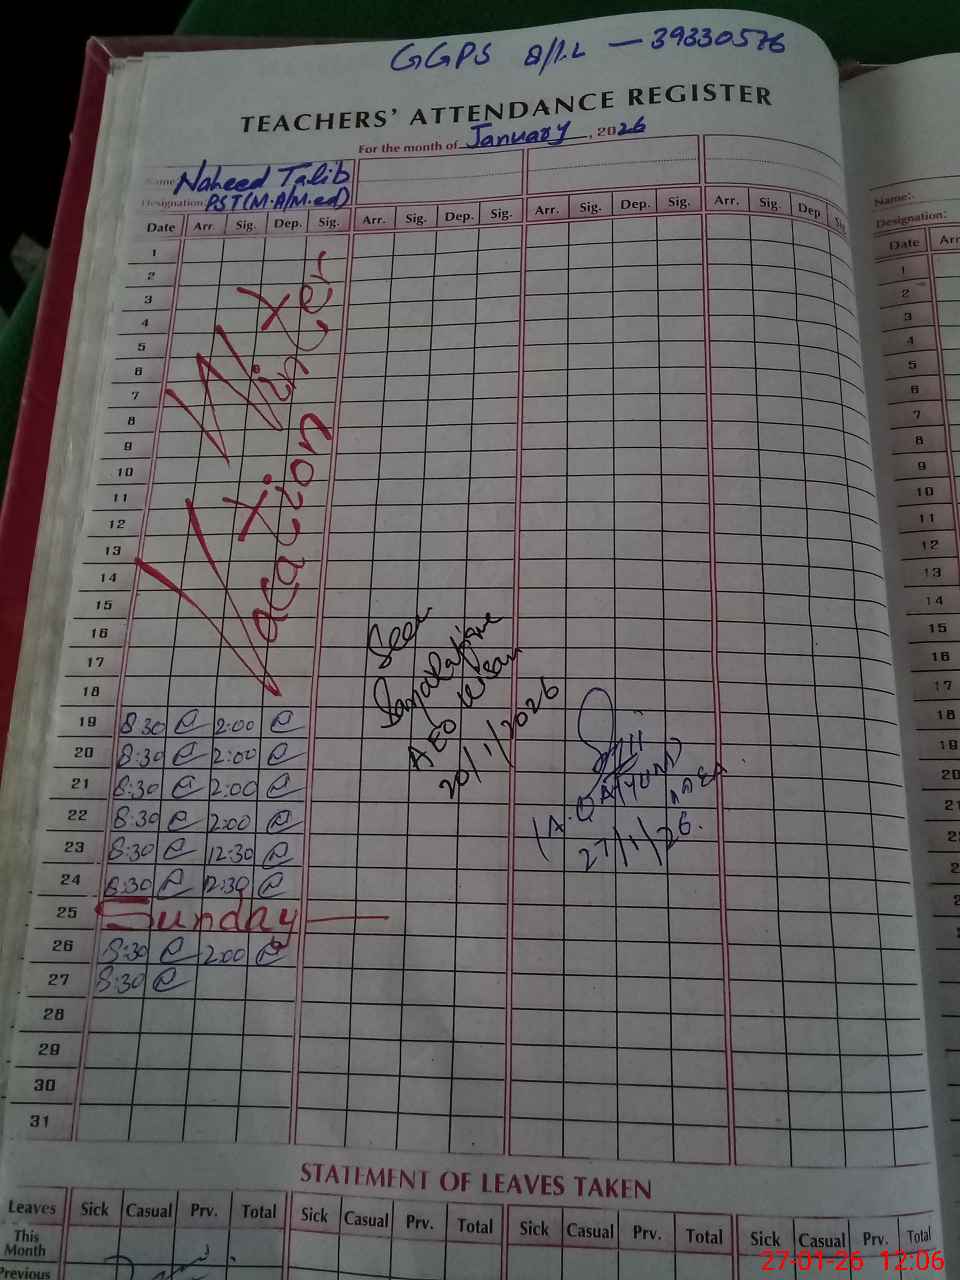 GGPS 39330576
TEACHERS' ATTENDANCE REGISTER
For the month of January, 2026
Name: Naheed Talib
Designation: PST(M.A/M.ed)
Date Arr. Sig. Dep. Sig. Arr. Sig. Dep. Sig. Arr. Sig. Dep. Sig. Arr. Sig. Dep Sig.
1
2
3
4
5
6
7
8
9
10
11
12
13
14
15
16
17
18
Winter
Vacation
19 8:30 2:00
20 8:30 2:00
21 8:30 2:00
22 8:30 2:00
23 8:30 12:30
24 8:30 12:30
25 Sunday
26 8:30 2:00
27 8:30
28
29
30
31
Seen
AEO
20/1/2026
(A. QAYYUM)
27/1/26.
STATEMENT OF LEAVES TAKEN
Leaves Sick Casual Prv. Total Sick Casual Prv. Total Sick Casual Prv. Total Sick Casual Prv. Total
This
Month
Previous
Name:
Designation:
Date Arr
1
2
3
4
5
6
7
8
9
10
11
12
13
14
15
16
17
18
19
20
21
22
27-01-26 12:06